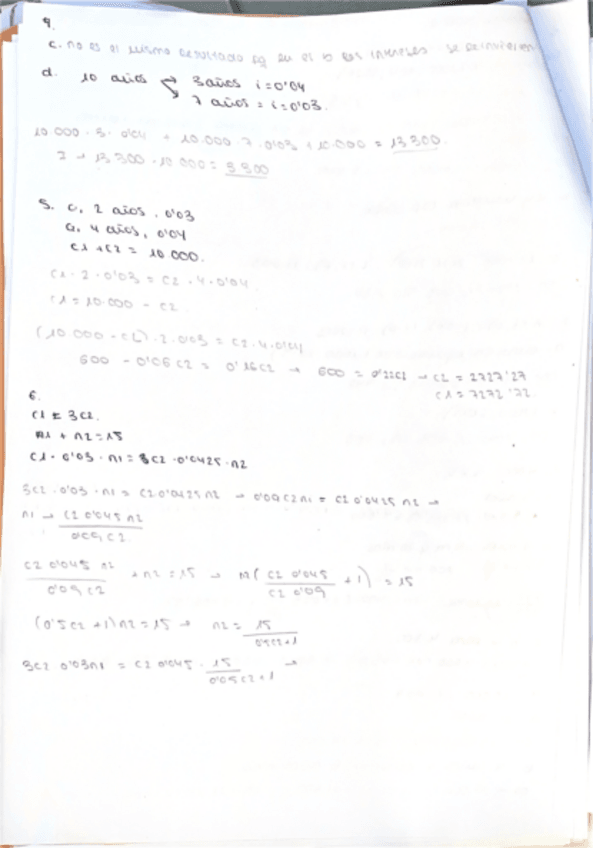 4.
c. no es el mismo resultado pq en el b los intereses se reinvierten
d. 10 años → 3 años i=0'04
↘ 7 años = i=0'03.
10.000 · 3 · 0'04 + 10.000 · 7 · 0'03 + 10.000 = 13 300.
I → 13 300 - 10 000 = 3 300
5. C1 2 años, 0'03
C2 4 años, 0'04
C1 + C2 = 10 000.
C1 · 2 · 0'03 = C2 · 4 · 0'04
C1 = 10.000 - C2
(10 000 - C2) · 2 · 0'03 = C2 · 4 · 0'04
600 - 0'06 C2 = 0'16 C2 → 600 = 0'22C2 → C2 = 2727'27
C1 = 7272'72
6.
C1 = 3C2.
n1 + n2 = 15
C1 · 0'03 · n1 = C2 · 0'0425 · n2
3C2 · 0'03 · n1 = C2 0'0425 n2 → 0'09 C2 n1 = C2 0'0425 n2 →
n1 → C2 0'045 n2
0'09 C2
C2 0'045 n2 / 0'09 C2 + n2 = 15 → n2 ( C2 0'045 / C2 0'09 + 1) = 15
(0'5 C2 + 1) n2 = 15 → n2 = 15 / 0'5C2+1
3C2 0'03 n1 = C2 0'045 · 15 / 0'05 C2+1 →